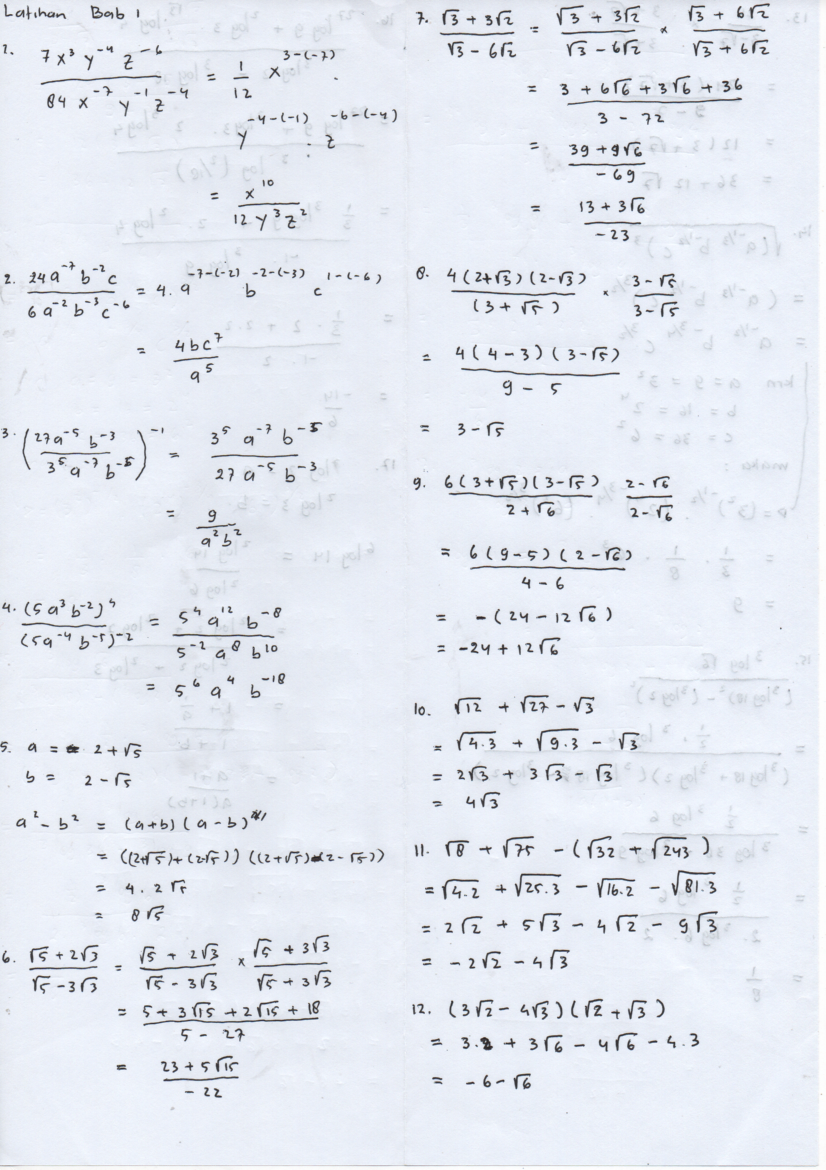 Latihan Bab 1
1. \frac{7 x^3 y^{-4} z^{-6}}{84 x^{-7} y^{-1} z^{-4}} = \frac{1}{12} x^{3-(-7)} .
y^{-4-(-1)} . z^{-6-(-4)}
= \frac{x^{10}}{12 y^3 z^2}
2. \frac{24 a^{-7} b^{-2} c}{6 a^{-2} b^{-3} c^{-6}} = 4. a^{-7-(-2)} b^{-2-(-3)} c^{1-(-6)}
= \frac{4bc^7}{a^5}
3. \left(\frac{27 a^{-5} b^{-3}}{3^5 a^{-7} b^{-5}}\right)^{-1} = \frac{3^5 a^{-7} b^{-5}}{27 a^{-5} b^{-3}}
= \frac{9}{a^2 b^2}
4. \frac{(5 a^3 b^{-2})^4}{(5 a^{-4} b^{-5})^{-2}} = \frac{5^4 a^{12} b^{-8}}{5^{-2} a^8 b^{10}}
= 5^6 a^4 b^{-18}
5. a = 2 + √5
b = 2 - √5
a^2 - b^2 = (a+b) (a-b)
= ((2+√5) + (2-√5)) ((2+√5) - (2-√5))
= 4. 2√5
= 8√5
6. \frac{√5 + 2√3}{√5 - 3√3} = \frac{√5 + 2√3}{√5 - 3√3} × \frac{√5 + 3√3}{√5 + 3√3}
= \frac{5 + 3√15 + 2√15 + 18}{5 - 27}
= \frac{23 + 5√15}{-22}
7. \frac{√3 + 3√2}{√3 - 6√2} = \frac{√3 + 3√2}{√3 - 6√2} × \frac{√3 + 6√2}{√3 + 6√2}
= \frac{3 + 6√6 + 3√6 + 36}{3 - 72}
= \frac{39 + 9√6}{-69}
= \frac{13 + 3√6}{-23}
8. \frac{4(2+√3)(2-√3)}{(3 + √5)} × \frac{3-√5}{3-√5}
= \frac{4(4-3)(3-√5)}{9 - 5}
= 3-√5
9. \frac{6(3+√5)(3-√5)}{2+√6} \frac{2-√6}{2-√6}
= \frac{6(9-5)(2-√6)}{4 - 6}
= -(24 - 12√6)
= -24 + 12√6
10. √12 + √27 - √3
= √4.3 + √9.3 - √3
= 2√3 + 3√3 - √3
= 4√3
11. √8 + √75 - (√32 + √243)
= √4.2 + √25.3 - √16.2 - √81.3
= 2√2 + 5√3 - 4√2 - 9√3
= -2√2 - 4√3
12. (3√2 - 4√3)(√2 + √3)
= 3.2 + 3√6 - 4√6 - 4.3
= -6 - √6